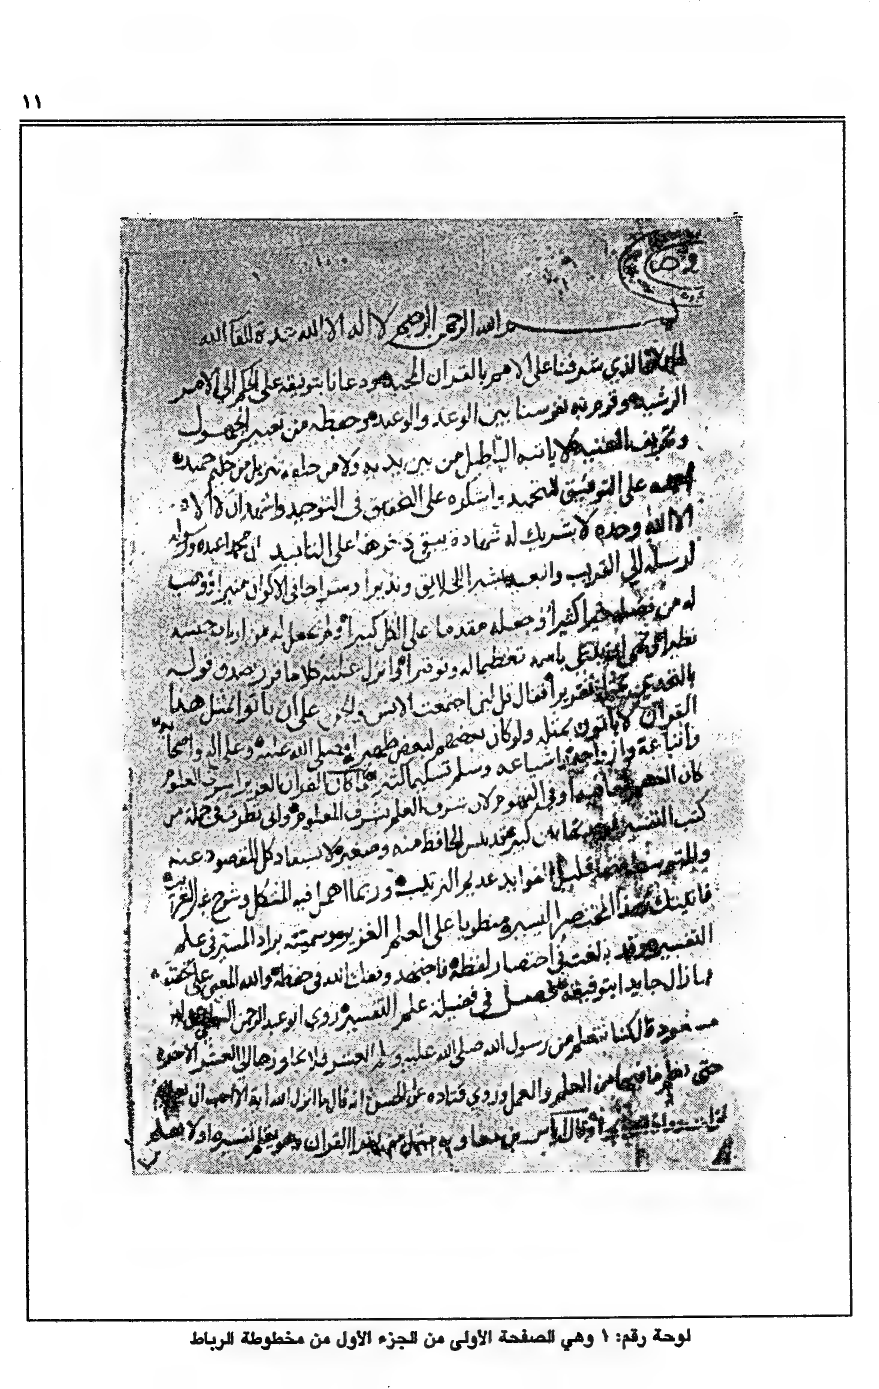 ١١
بسم الله الرحمن الرحيم لا اله الا الله عدة للقا الله
الحمد لله الذي شرفنا على الامم بالقران المجيد ودعانا بتوفيقه على الحكم الى الامر
الرشيد وقوم به نفوسنا بين الوعد والوعيد وحفظه من تغيير الجهول
وتحريف العنيد لا ياتيه الباطل من بين يديه ولا من خلفه تنزيل من حكيم حميد
احمده على التوفيق للتحميد واشكره على التحقيق في التوحيد واشهد ان لا اله
الا الله وحده لا شريك له شهادة يبقى ذخرها على التابيد وان محمدا عبده ورسوله
ارسله الى القريب والبعيد بشيرا للخلائق ونذيرا وسراجا في الاكوان منيرا ووهب
له من فضله خيرا كثيرا وجعله مقدما على الكل كبيرا ولم يجعل له من ارباب جنسه
نظيرا ونهى ان يدعى باسمه تعظيما له وتوقيرا وانزل عليه كلاما قرر صدق قوله
بالتحدي بمثله تقريرا فقال قل لين اجتمعت الانس والجن على ان ياتوا بمثل هذا
القران لا ياتون بمثله ولو كان بعضهم لبعض ظهيرا فصلى الله عليه وعلى اله واصحابه
وازواجه واشياعه وسلم تسليما كثيرا لما كان القران العزيز اشرف العلوم
كان الفهم لمعانيه اوفى الفهوم لان شرف العلم بشرف المعلوم واني نظرت في جملة من
كتب التفسير فوجدتها بين كبير قد يئس الحافظ منه وصغير لا يستفاد كل المقصود منه
والمتوسط منها قليل الفوايد عديم الترتيب وربما اهمل فيه المشكل وشرح غير الغريب
فاتيتك بهذا المختصر اليسير منطويا على العلم الغزير ووسمته بزاد المسير في علم
التفسير وقد بالغت في اختصار لفظه فاجتهد وفقك الله في حفظه والله المعين على تحقيقه
فما زال جايدا بتوفيقه فصل في فضيلة علم التفسير روى ابو عبد الرحمن السلمي عن ابن
مسعود قال كنا نتعلم من رسول الله صلى الله عليه وسلم العشر فلا نجاوزها الى العشر الاخر
حتى نعلم ما فيها من العلم والعمل وروى قتاده عن الحسن انه قال ما انزل الله اية الا احب ان
وقال اياس بن معاويه مثل من يقرا القران وهو يعلم تفسيره او لا يعلم
لوحة رقم: ١ وهي الصفحة الأولى من الجزء الأول من مخطوطة الرباط